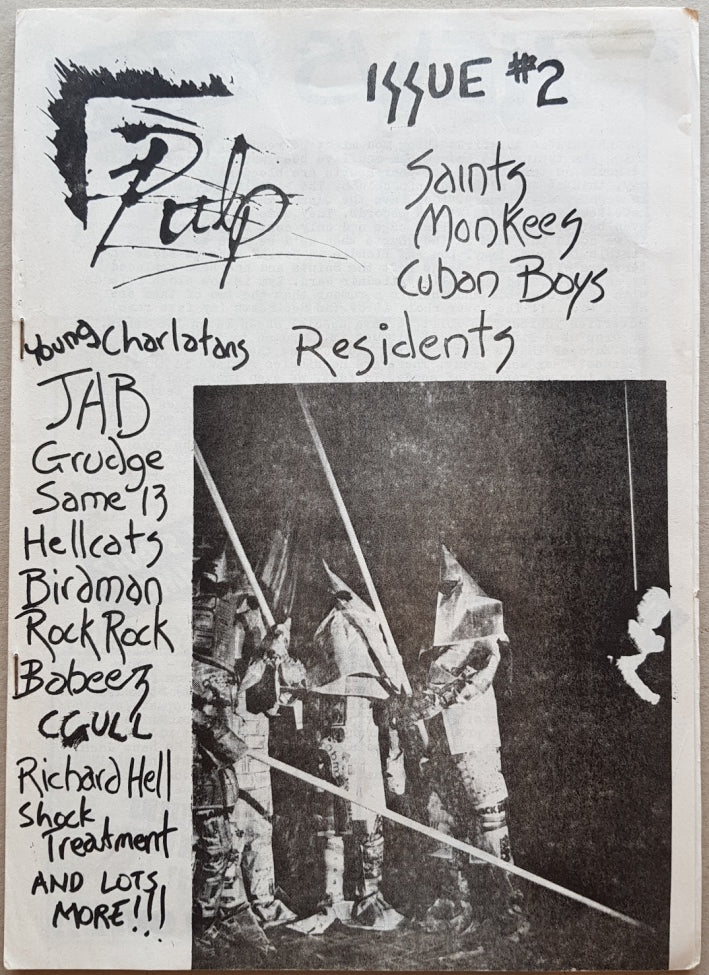 Pulp
ISSUE #2
Saints
Monkees
Cuban Boys
Young Charlatans
Residents
JAB
Grudge
Same 13
Hellcats
Birdman
Rock Rock
Babeez
CGULL
Richard Hell
Shock
Treatment
AND LOTS
MORE!!!